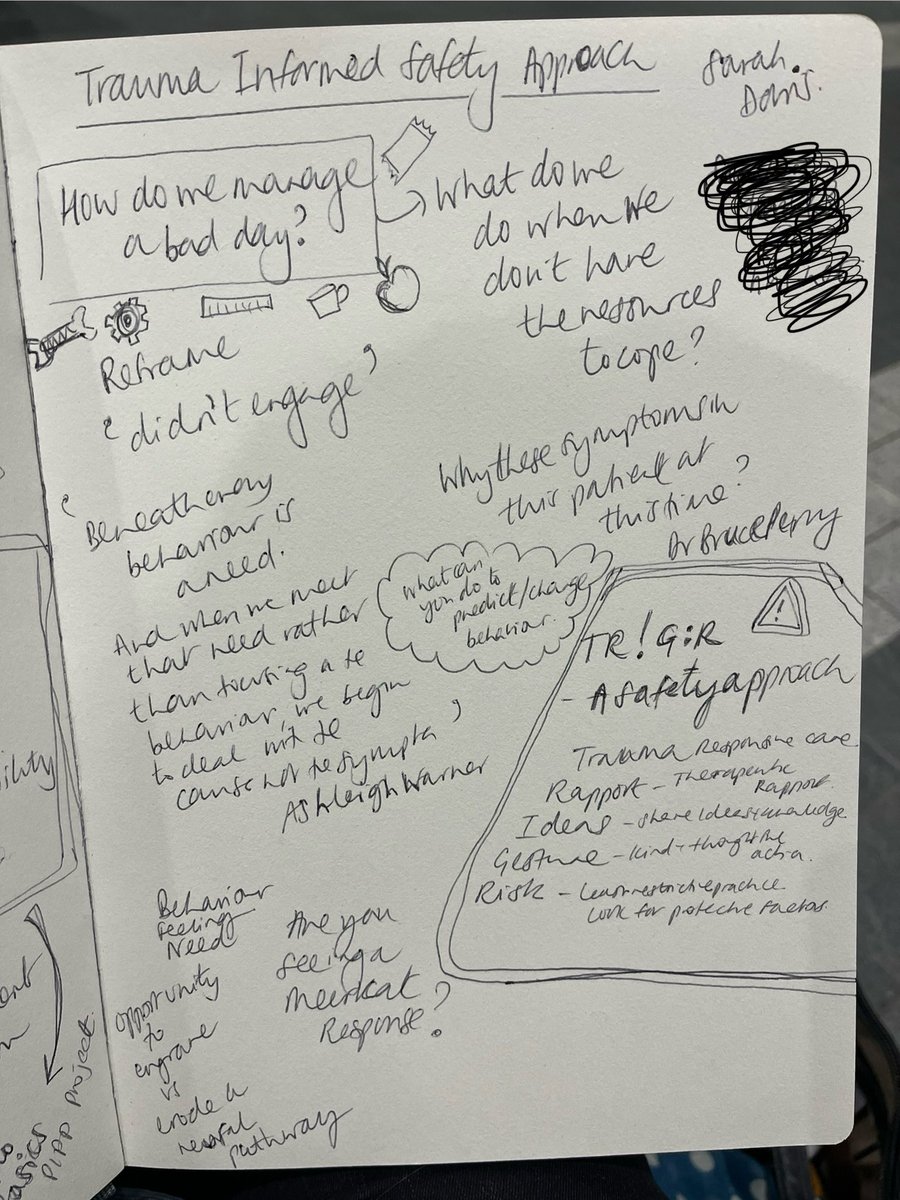 Trauma Informed Safety Approach
Sarah
How do we manage
a bad day?
What do we
do when we
don't have
the resources
to cope?
Reframe
'didn't engage'
Why these symptoms in
this patient at
this time?
Dr Bruce Perry
'Beneath every
behaviour is
a need.
And when we meet
that need rather
than focusing on the
behaviour, we begin
to deal with the
cause not the symptom'
Ashleigh Warner
What can
you do to
predict/change
behaviour.
TR!G:R
- A safety approach
Trauma Responsive care
Rapport - Therapeutic
Rapport.
Ideas - share ideas + knowledge
Gesture - kind + thoughtful
action.
Risk - Least restrictive practice
look for protective factors.
Behaviour
Feeling
Need
opportunity
to
engrave
vs
erode a
neural
pathway
Are you
seeing a
Meerkat
Response?
PIPP project.